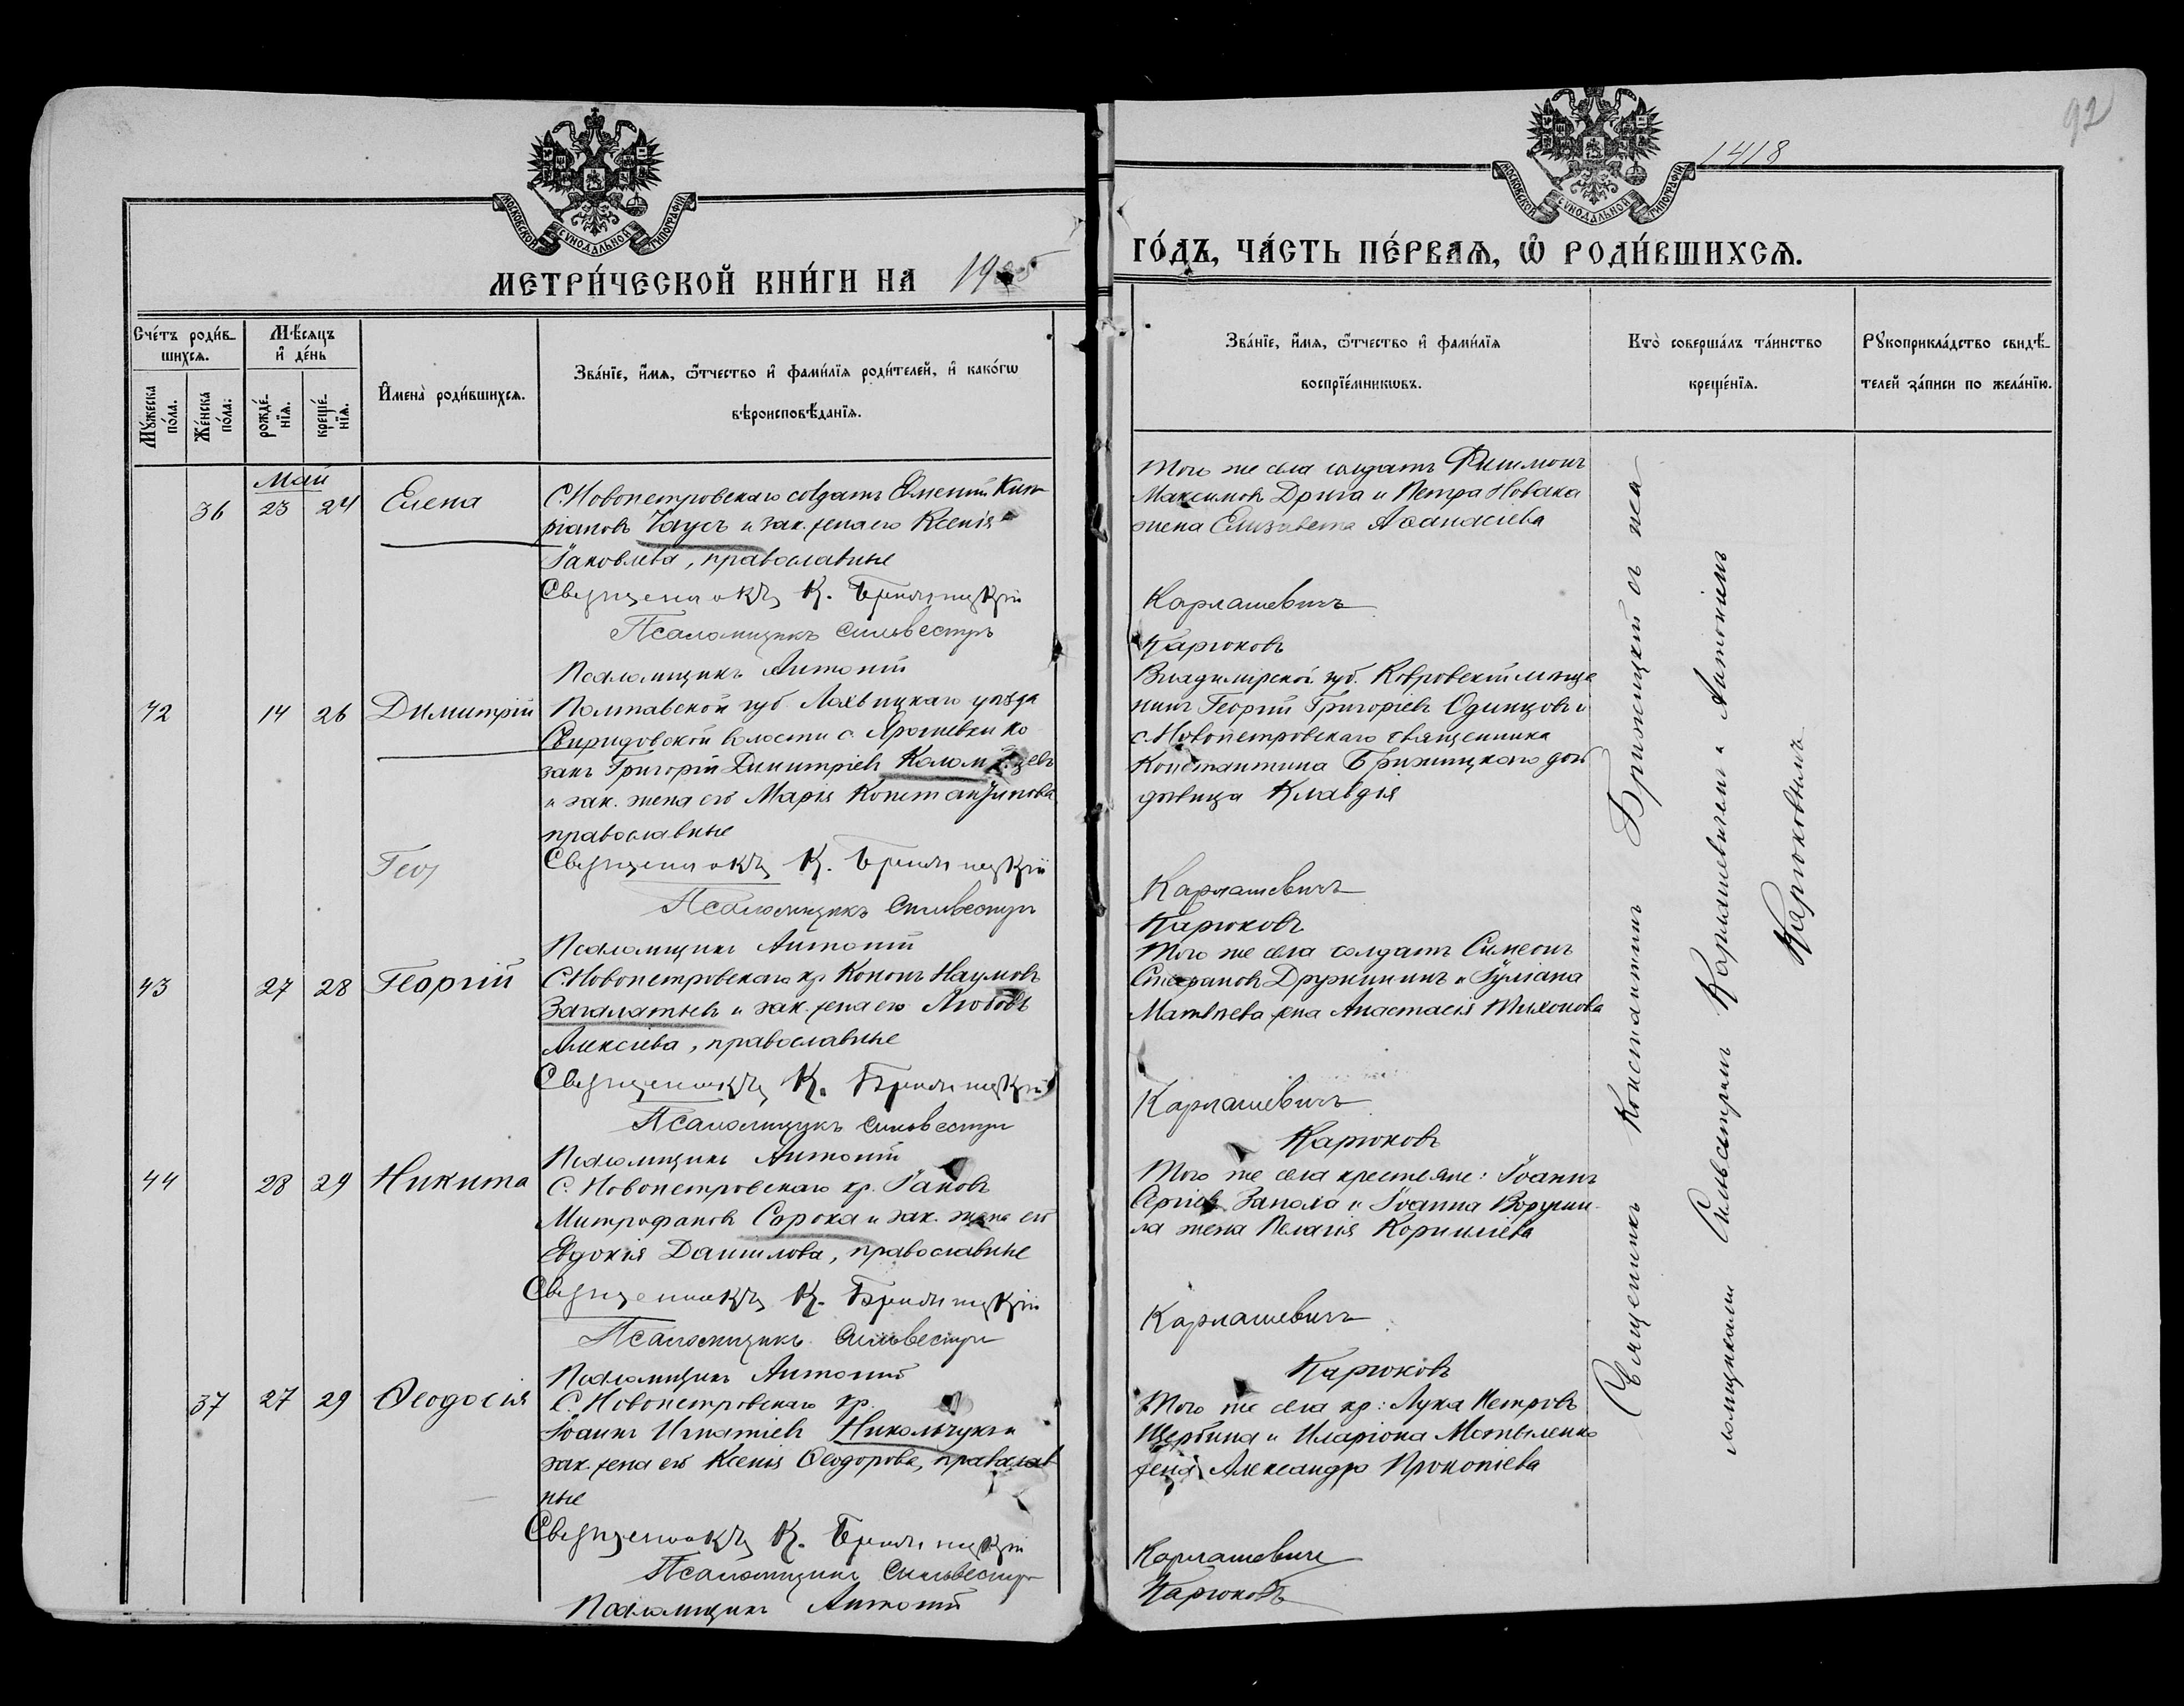 92
1418
МОСКОВСКОЙ СУНОДАЛЬНОЙ ТИПОГРАФІИ
МОСКОВСКОЙ СУНОДАЛЬНОЙ ТИПОГРАФІИ
МЕТРИ́ЧЕСКОЙ КНИ́ГИ НА 1905
ГО́ДЪ, ЧА́СТЬ ПЕ́РВАѦ, Ѡ҆ РОДИ́ВШИХСѦ.
Сче́тъ роди́в-
шихсѧ.
Мꙋ́жеска по́ла.
Же́нска по́ла.
Мѣ́сѧцъ
и҆ де́нь
рожде́-
нїѧ.
креще́-
нїѧ.
И҆мена̀ роди́вшихсѧ.
Зва́нїе, и҆́мѧ, ѻ҆́тчество и҆ фами́лїѧ роди́телей, и҆ како́гѡ
вѣроисповѣ́данїѧ.
Зва́нїе, и҆́мѧ, ѻ҆́тчество и҆ фами́лїѧ
воспрїе́мникѡвъ.
Кто̀ соверша́лъ та́инство
креще́нїѧ.
Рꙋкоприкла́дство свидѣ́-
телей за́писи по жела́нїю.
Май
36 23 24 Елена
С. Новопетровскаго солдатъ Евменій Кип
ріановъ Чаусъ и зак. жена его Ксенія
Іаковлева, православные
Священникъ К. Брижицкій
Псаломщикъ Сильвестръ
Псаломщикъ Антоній
Того же села солдатъ Филимонъ
Максимовъ Дрига и Петра Новака
жена Елизавета Аѳанасіева
Карлашевичъ
Карюковъ
42 14 26 Димитрій
Полтавской губ. Лохвицкаго уѣзда
Свиридовской волости с. Ярошевки ко
закъ Григорій Димитріевъ
и зак. жена его Марія Константинова
православные
Гео
Священникъ К. Брижицкій
Псаломщикъ Сильвестръ
Псаломщикъ Антоній
Владимірской губ. Ковровскій мѣща
нинъ Георгій Григоріевъ Одинцовъ и
с. Новопетровскаго священника
Константина Брижицкаго доч
дѣвица Клавдія
Карлашевичъ
Карюковъ
43 27 28 Георгій
С. Новопетровскаго кр. Кононъ Наумовъ
и зак. жена его Любовь
Алексіева, православные
Священникъ К. Брижицкій
Псаломщикъ Сильвестръ
Псаломщикъ Антоній
Того же села солдатъ Симеонъ
Стефановъ Дружининъ и Іуліана
Матвѣева жена Анастасія Тихонова
Карлашевичъ
Карюковъ
44 28 29 Никита
С. Новопетровскаго кр. Іаковъ
Митрофановъ Сорока и зак. жена его
Евдокія Даниилова, православные
Священникъ К. Брижицкій
Псаломщикъ Сильвестръ
Псаломщикъ Антоній
Того же села крестьяне: Іоаннъ
Сергіевъ и Іоанна
жена Пелагія Корниліева
Карлашевичъ
Карюковъ
37 27 29 Ѳеодосія
С. Новопетровскаго кр.
Іоаннъ Игнатіевъ Никольчукъ и
зак. жена его Ксенія Ѳеодорова, православ
ные
Священникъ К. Брижицкій
Псаломщикъ Сильвестръ
Псаломщикъ Антоній
Того же села кр: Лука Петровъ
Щербина и Иларіона Матвіенка
жена Александра Прокопіева
Карлашевичъ
Карюковъ
Священникъ Константинъ Брижицкій съ пса
ломщиками Сильвестромъ Карлашевичемъ и Антоніемъ
Карюковымъ